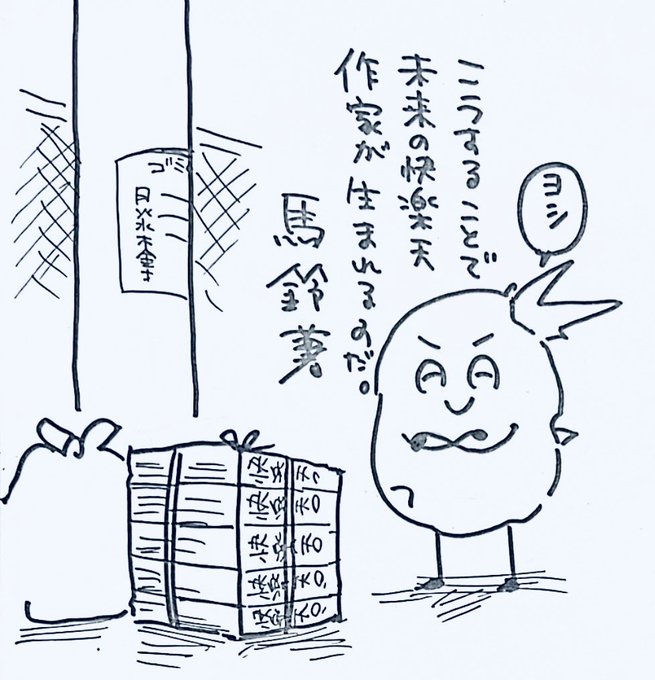 ヨシ
こうすることで
未来の快楽天
作家が生まれるのだ。
馬鈴薯
ゴミ
快楽天
快楽天
快楽天
快楽天
快楽天